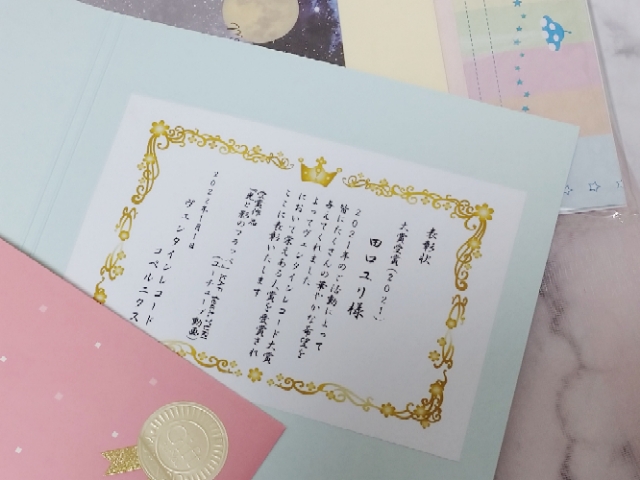 表彰状
大賞受賞(2021)
田口ユリ様
2021年のご活動によって
皆にたくさんの華やかな希望を
与えてくれました
よってヴェンタインレコード大賞
において栄えある大賞を受賞され
ここに表彰いたします
受賞作品
(ユーチューブ動画)
2022年1月1日
ヴェンタインレコード
コペルニクス